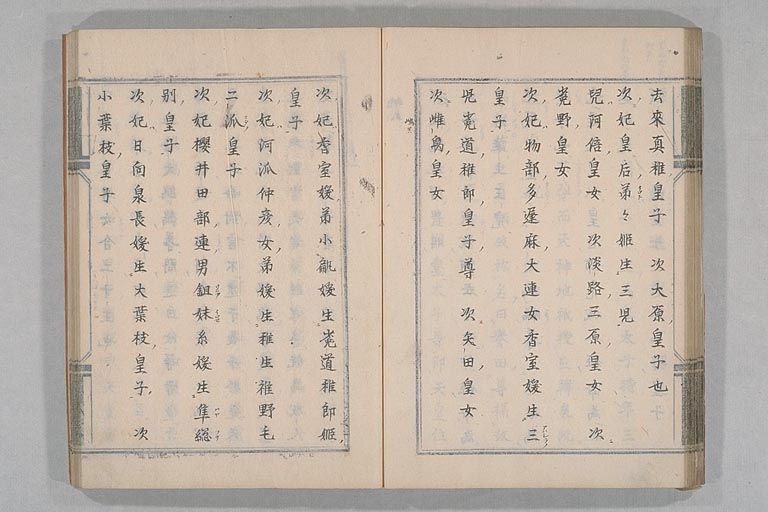 去來真稚皇子次大原皇子也
次妃皇后弟々姬生三児
兒阿倍皇女次淡路三原皇女次
菟野皇女
次妃物部多遅麻大連女香室媛生三
皇子
児菟道稚郎皇子尊次矢田皇女
次雌鳥皇女
次妃香室媛弟小甂媛生菟道稚郎姬
皇子
次妃河派仲彦女弟媛生稚生稚野毛
二派皇子
次妃櫻井田部連男鉏妹糸媛生隼総
別皇子
次妃日向泉長媛生大葉枝皇子次
小葉枝皇子